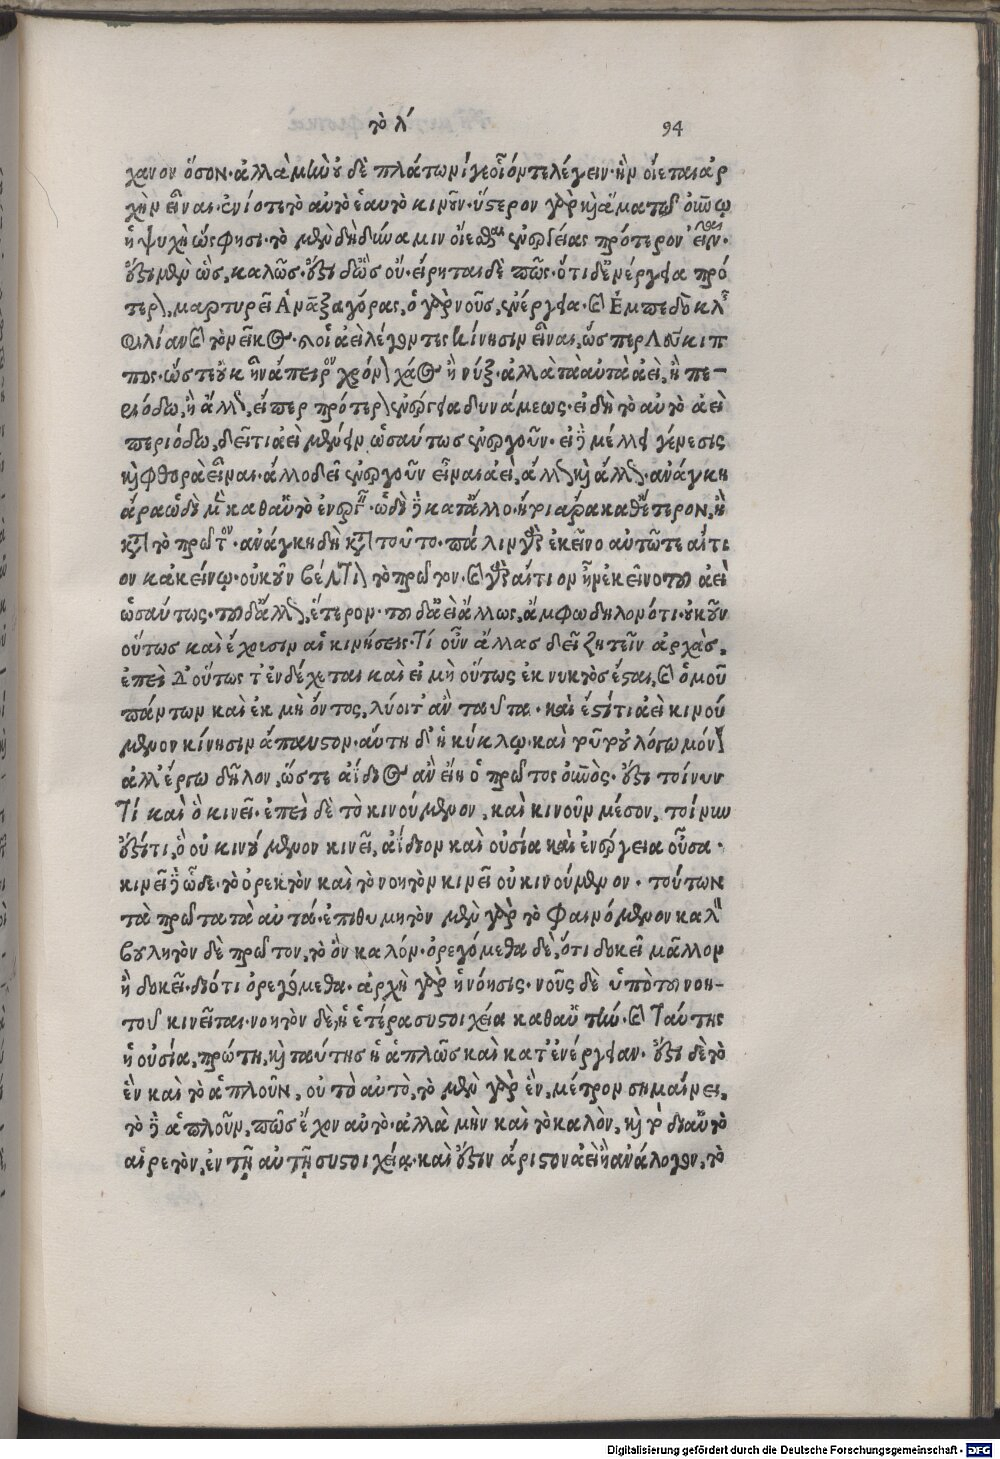 τὸ λ
94
χανον ὅσον· ἀλλὰ μὴν οὐδὲ πλάτωνί γε οἷόν τε λέγειν· ἣν οἴεται ἀρ
χὴν εἶναι ἐνίοτε τὸ αὐτὸ ἑαυτὸ κινοῦν· ὕστερον γὰρ καὶ ἅμα τῷ οὐρανῷ
ἡ ψυχὴ ὥς φησι· τὸ μὲν δὴ δύναμιν οἴεσθαι ἐνεργείας πρότερον εἶναι·
ἔστι μὲν ὡς, καλῶς· ἔστι δ' ὡς οὔ· εἴρηται δὲ πῶς· ὅτι δ' ἐνέργεια πρό
τερον, μαρτυρεῖ Ἀναξαγόρας, ὁ γὰρ νοῦς, ἐνέργεια· καὶ Ἐμπεδοκλῆς
φιλίαν καὶ τὸ νεῖκος· καὶ οἱ ἀεὶ λέγοντες κίνησιν εἶναι, ὥσπερ Λεύκιπ
πος· ὥστε οὐκ ἦν ἄπειρον χρόνον χάος ἢ νύξ· ἀλλὰ τὰ αὐτὰ ἀεὶ, ἢ πε-
ριόδω, ἢ ἄλλως, εἴπερ πρότερον ἐνέργεια δυνάμεως· εἰ δὴ τὸ αὐτὸ ἀεὶ
περιόδω, δεῖ τι ἀεὶ μένειν ὡσαύτως ἐνεργοῦν· εἰ δὲ μέλλει γένεσις
καὶ φθορὰ εἶναι· ἄλλο δεῖ ἐνεργοῦν εἶναι ἀεὶ, ἄλλως καὶ ἄλλως· ἀνάγκη
ἄρα ὡδὶ μὲν καθ' αὑτὸ ἐνεργεῖν· ὡδὶ δὲ κατ' ἄλλο· ἤτοι ἄρα καθ' ἕτερον, ἢ
κατὰ τὸ πρῶτον· ἀνάγκη δὴ κατὰ τοῦτο· πάλιν γὰρ ἐκεῖνο αὑτῷ τε αἴτι
ον κἀκείνῳ· οὐκοῦν βέλτιον τὸ πρῶτον· καὶ γὰρ αἴτιον ἦν ἐκεῖνο τοῦ ἀεὶ
ὡσαύτως· τοῦ δ' ἄλλως, ἕτερον· τοῦ δ' ἀεὶ ἄλλως, ἄμφω δηλονότι· οὐκοῦν
οὕτως καὶ ἔχουσιν αἱ κινήσεις· Τί οὖν ἄλλας δεῖ ζητεῖν ἀρχὰς.
ἐπεὶ δ' οὕτως τ' ἐνδέχεται καὶ εἰ μὴ οὕτως ἐκ νυκτὸς ἔσται, καὶ ὁμοῦ
πάντων καὶ ἐκ μὴ ὄντος, λύοιτ' ἂν ταῦτα· καὶ ἔστί τι ἀεὶ κινού
μενον κίνησιν ἄπαυστον· αὕτη δ' ἡ κύκλῳ· καὶ τοῦτο οὐ λόγω μόνον
ἀλλ' ἔργω δῆλον, ὥστε ἀΐδιος ἂν εἴη ὁ πρῶτος οὐρανός· ἔστι τοίνυν
Τί καὶ ὃ κινεῖ· ἐπεὶ δὲ τὸ κινούμενον, καὶ κινοῦν μέσον, τοίνυν
ἔστί τι, ὃ οὐ κινούμενον κινεῖ, ἀΐδιον καὶ οὐσία καὶ ἐνέργεια οὖσα·
κινεῖ δὲ ὧδε· τὸ ὀρεκτὸν καὶ τὸ νοητὸν κινεῖ οὐ κινούμενον· τούτων
τὰ πρῶτα τὰ αὐτά· ἐπιθυμητὸν μὲν γὰρ τὸ φαινόμενον καλόν
βουλητὸν δὲ πρῶτον, τὸ ὂν καλόν· ὀρεγόμεθα δὲ, ὅτι δοκεῖ μᾶλλον
ἢ δοκεῖ· διότι ὀρεγόμεθα· ἀρχὴ γὰρ ἡ νόησις· νοῦς δὲ ὑπὸ τοῦ νοη-
τοῦ κινεῖται· νοητὸν δὲ, ἡ ἑτέρα συστοιχεία καθ' αὑτήν· καὶ Ταύτης
ἡ οὐσία, πρώτη, καὶ ταύτης ἡ ἁπλῶς καὶ κατ' ἐνέργειαν· ἔστι δὲ τὸ
ἓν καὶ τὸ ἁπλοῦν, οὐ τὸ αὐτὸ, τὸ μὲν γὰρ ἓν, μέτρον σημαίνει,
τὸ δὲ ἁπλοῦν, πῶς ἔχον αὐτὸ· ἀλλὰ μὴν καὶ τὸ καλὸν, καὶ τὸ δι' αὑτὸ
αἱρετὸν, ἐν τῇ αὐτῇ συστοιχείᾳ· καὶ ἔστιν ἄριστον ἀεὶ ἢ ἀνάλογον, τὸ
Digitalisierung gefördert durch die Deutsche Forschungsgemeinschaft · DFG